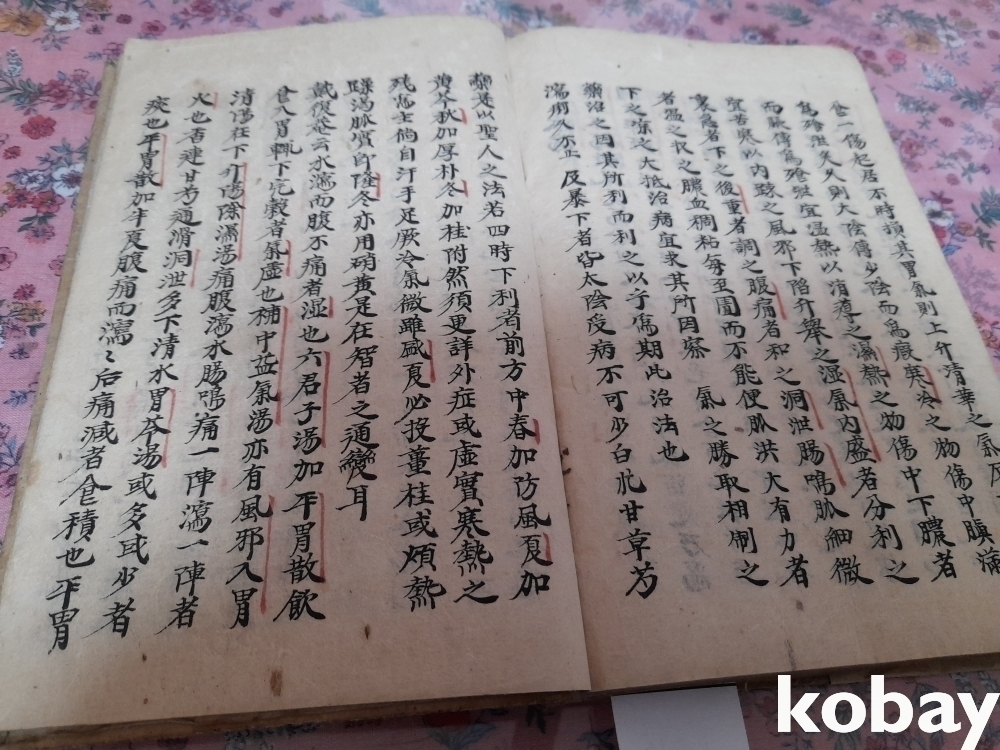 食一傷起居不時損其胃氣則上升清華之氣反
爲飧泄久久則大陰傳少陰而爲寒冷之物傷中䐜滿
而傳爲飧泄宜溫熱以消導之濕熱之物傷中下膿者
宜苦寒以內疎之風邪下陷升舉之湿氣內盛者分利之
裏急者下之後重者調之腹痛者和之洞泄腸鳴脉細微
者溫之收之膿血稠粘每至圊而不能便脉洪大有力者
下之寒之大抵治病宜求其所因察 氣之勝取相制之
藥治之因其所利而利之以平爲期此治法也
瀉痢久不止及暴下者皆太陰受病不可少白朮甘草芍
藥是以聖人之法若四時下利者前方中春加防風夏加
黄芩秋加厚朴冬加桂附然須更詳外症或虛實寒熱之
殊急士倘自汗手足厥冷氣微雖盛夏必投薑桂或煩熱
躁渴脉實卽隆冬亦用硝黄是在智者之通變耳
戴復菴云水瀉而腹不痛者湿也六君子湯加平胃散飲
食入胃輒下完穀者氣虛也補中益氣湯亦有風邪入胃
清陽在下升陽除濕湯痛腹瀉水腸鳴痛一陣瀉一陣者
火也香連甘芍通滑洞泄多下清水胃苓湯或多或少者
痰也平胃散加半夏腹痛而瀉〻后痛減者食積也平胃
kobay